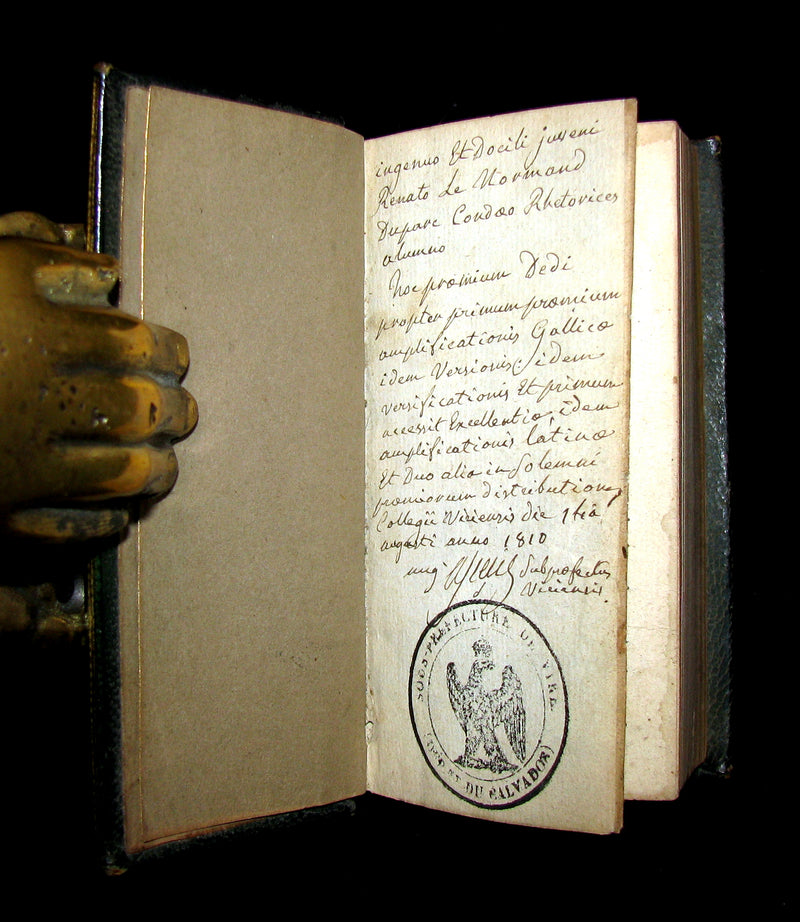 ingenuo Et Docili juveni
Renato Le Normand
Duparc Condæo Rhetorices
alumno
hoc præmium Dedi
propter primum præmium
amplificationis Gallicæ
idem Versionis; idem
versificationis Et primum
accessit Excellentiæ, idem
amplificationis latinæ
Et Duo alia in Solemni
præmiorum distributione
Collegii Viriensis die 1tia
augusti anno 1810
aug Subpræfectus
Viriensis.
SOUS-PRÉFECTURE DE VIRE
DU CALVADOR)